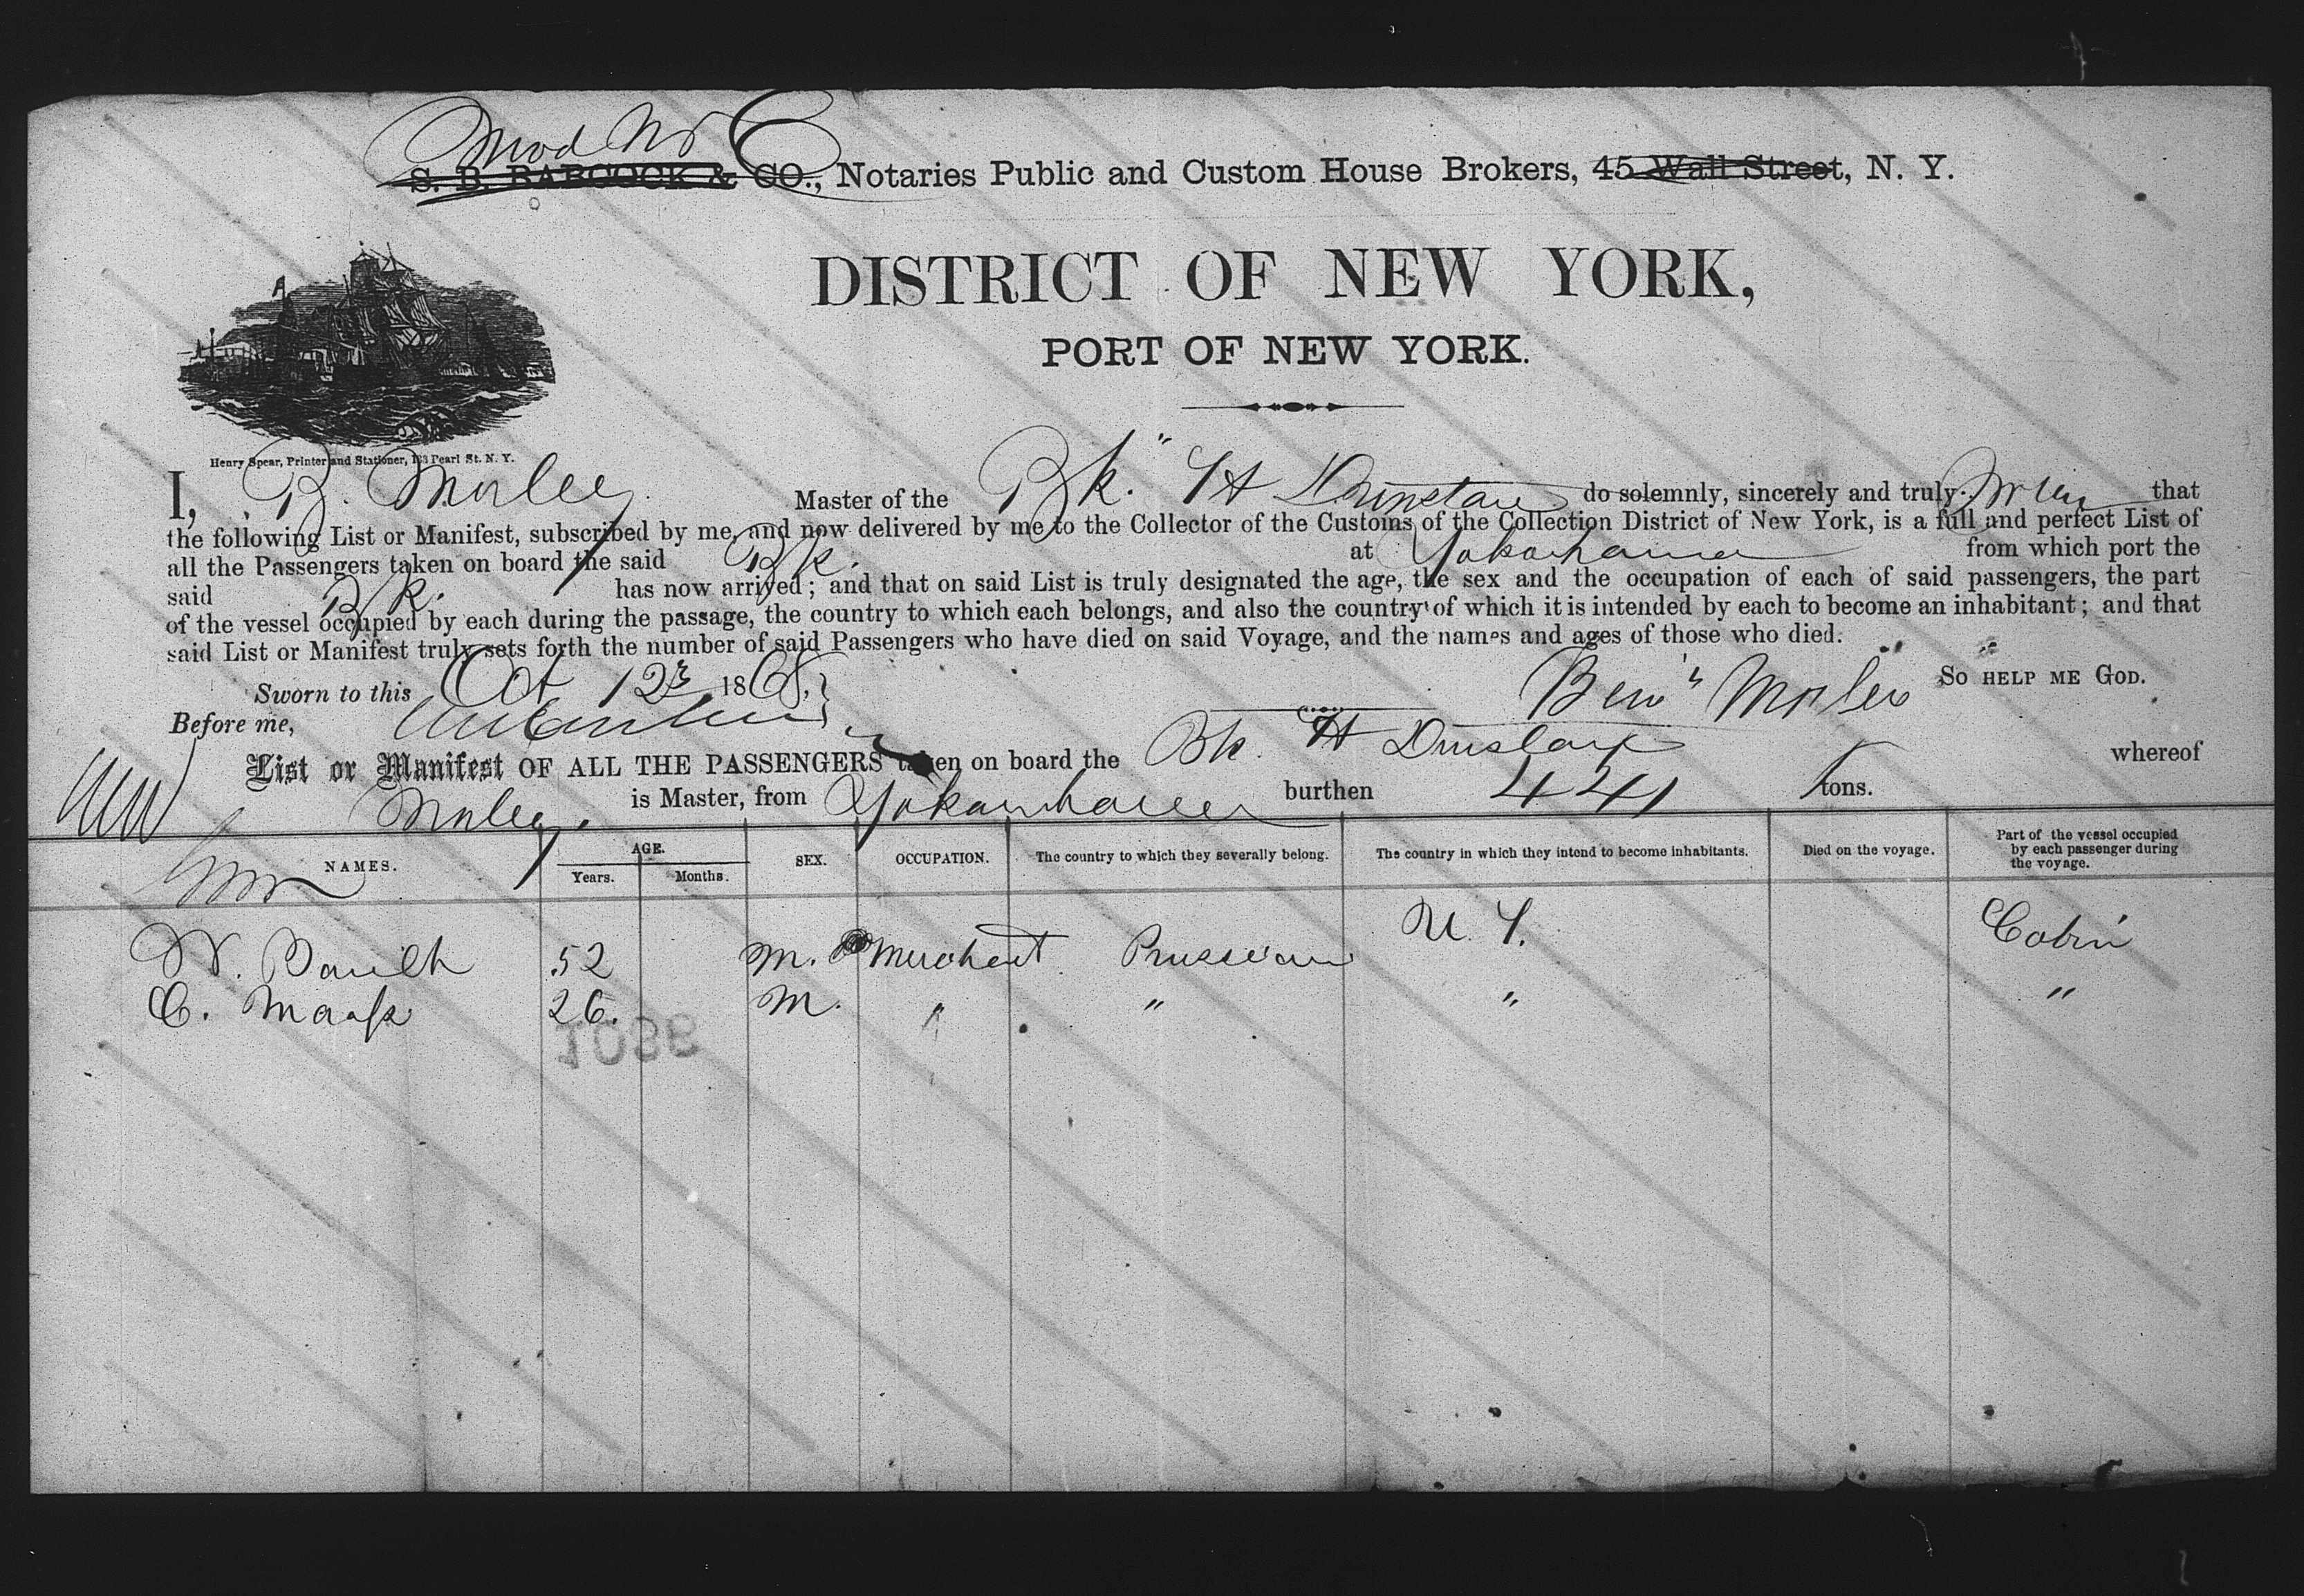 S. B. BABCOCK & CO., Notaries Public and Custom House Brokers, 45 Wall Street, N. Y.
DISTRICT OF NEW YORK,
PORT OF NEW YORK.
Henry Spear, Printer and Stationer, 133 Pearl St. N. Y.
I, B. Morley Master of the Bk. "H do solemnly, sincerely and truly that
the following List or Manifest, subscribed by me, and now delivered by me to the Collector of the Customs of the Collection District of New York, is a full and perfect List of
all the Passengers taken on board the said Bk. at Yokohama from which port the
said Bk. has now arrived; and that on said List is truly designated the age, the sex and the occupation of each of said passengers, the part
of the vessel occupied by each during the passage, the country to which each belongs, and also the country of which it is intended by each to become an inhabitant; and that
said List or Manifest truly sets forth the number of said Passengers who have died on said Voyage, and the names and ages of those who died.
SO HELP ME GOD.
Sworn to this Oct 12 1868. Benj Morley
Before me,
List or Manifest OF ALL THE PASSENGERS taken on board the Bk. H whereof
Morley. is Master, from Yokohama burthen 441 tons.
NAMES. AGE. Years. Months. SEX. OCCUPATION. The country to which they severally belong. The country in which they intend to become inhabitants. Died on the voyage. Part of the vessel occupied by each passenger during the voyage.
W. 52 M. Merchant Prussian U. S. Cabin
C. Maass 26. M. " " " "
1036